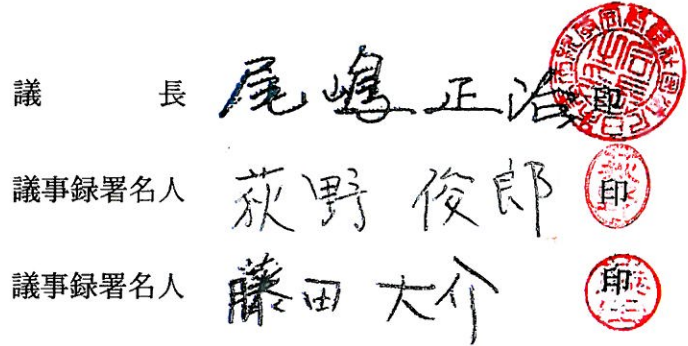 議長 尾嶋正治 印
議事録署名人 荻野俊郎 印
議事録署名人 藤田大介 印